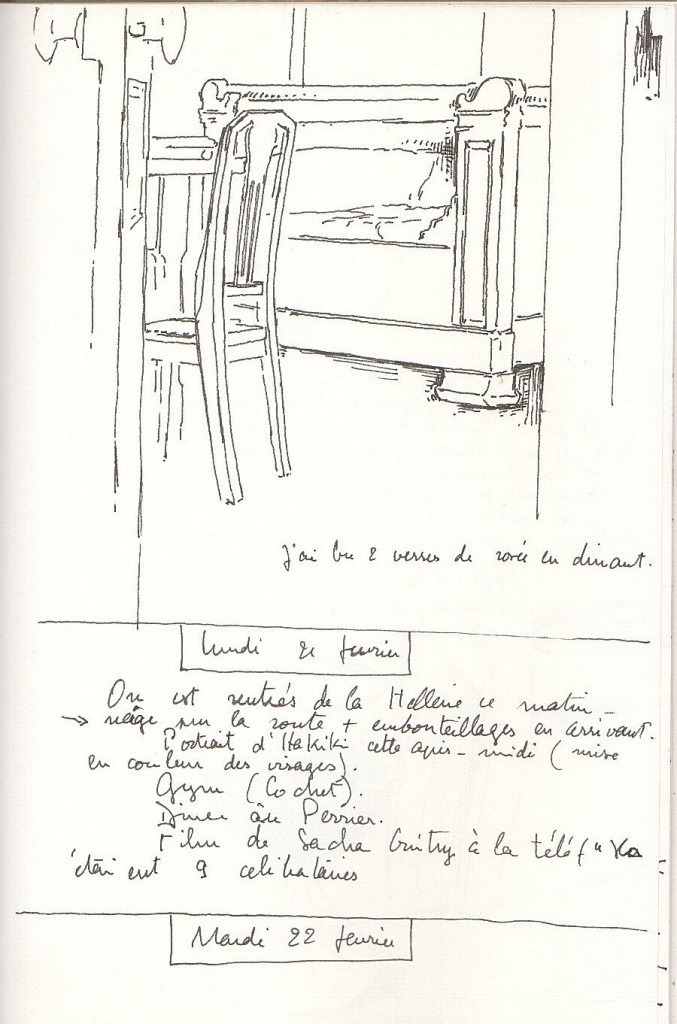 J'ai bu 2 verres de rosé en dinant.
Lundi 21 fevrier
On est rentrés de la Hellerie ce matin -
→ neige sur la route + embouteillages en arrivant.
Portrait d'Hakiki cette apis-midi (mise
en couleur des visages).
Gym (Cochet).
Diner au Perrier.
Film de Sacha Guitry à la télé ("
étaient 9 celibataires
Mardi 22 fevrier